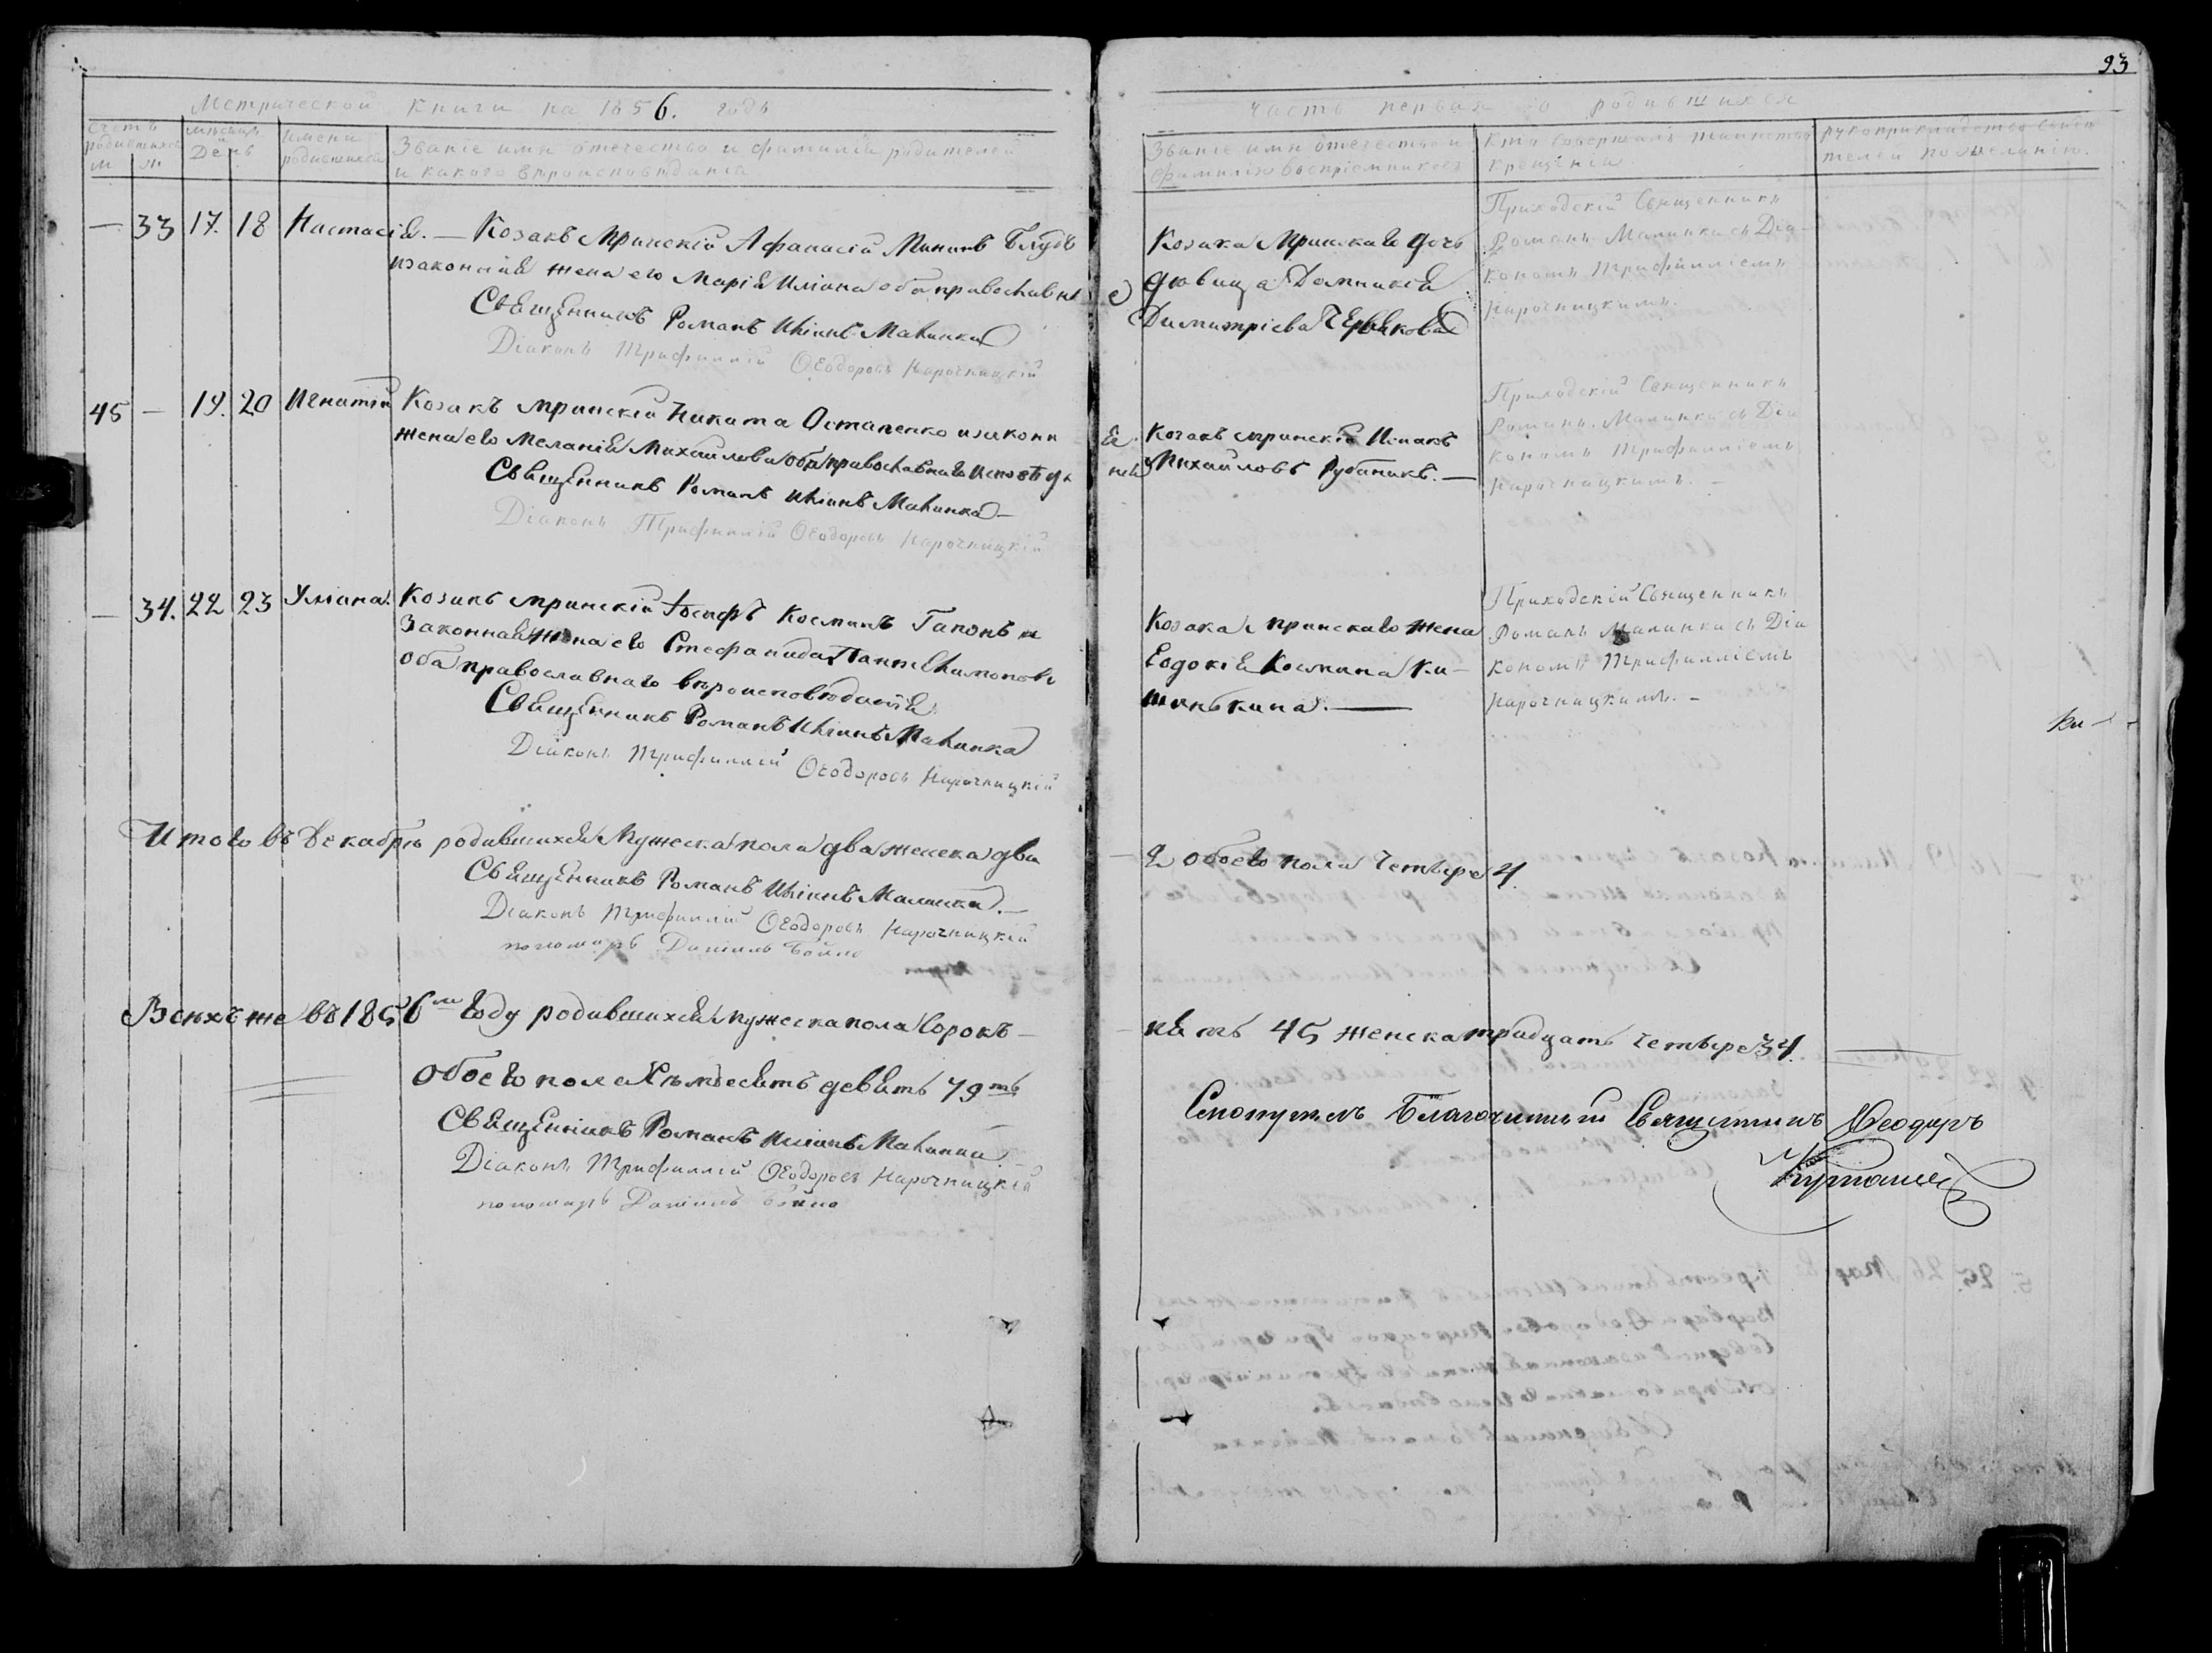 93
Метрической книги на 1856. годъ
Часть первая о родившихся
Счетъ родившихся
м ж
мѣсяцъ
День
имена родившихся
Званіе имя отечество и фамилія родителей
и какого вѣроисповѣданія
Званіе имя отечество и
фамилія воспріемниковъ
кто совершалъ таинство
крещенія
рукоприкладство свидѣ
телей по желанію.
— 33 17. 18 Настасія. — Козакъ Мринскій Афанасій Мининъ
изаконная жена его Марія Иліина оба православны
е
Священникъ Романъ Иліинъ Малинка
Діаконъ Трифиллій Ѳеодоровъ Нарочницкій
Козака Мринскаго дочь
дѣвица Домникія
Димитріева
Приходскій Священникъ
Романъ Малинка съ Діа
кономъ Трифилліемъ
Нарочницкимъ.
45 — 19. 20 Игнатій Козакъ мринскій Никита Остапенко изаконн
ая
жена его Меланія Михайлова оба православнаго исповѣда
нія
Священникъ Романъ Иліинъ Малинка —
Діаконъ Трифиллій Ѳеодоровъ Нарочницкій
Козакъ мринскій Исаакъ
Михайловъ Рубаникъ. —
Приходскій Священникъ
Романъ Малинка съ Діа
кономъ Трифилліемъ
Нарочницкимъ. —
— 34. 22 23 Уліана. Козакъ мринскій Іосифъ Косминъ Гапонъ и
Законная жена его Стефанида Пантелимонова
оба православнаго вѣроисповѣданія
Священникъ Романъ Иліинъ Малинка
Діаконъ Трифиллій Ѳеодоровъ Нарочницкій
Козака мринскаго жена
Евдокія Космина Ки—
шенькина. —
Приходскій Священникъ
Романъ Малинка съ Діа
кономъ Трифилліемъ
Нарочницкимъ. —
Ки —
Итого въ Декабрѣ родившихся Мужеска пола два женска два
— 2 обоего пола четыре 4.
Священникъ Романъ Иліинъ Малинка. —
Діаконъ Трифиллій Ѳеодоровъ Нарочницкій
пономарь Даніилъ Бойко
Всѣхъ же въ 1856мъ году родившихся мужеска пола Сорокъ —
— пять 45 женска тридцать четыре 34.
обоего пола семдесятъ девять 79ть
Священникъ Романъ Иліинъ Малинка —
Діаконъ Трифиллій Ѳеодоровъ Нарочницкій
пономарь Даніилъ Бойко
Благочинный Священникъ Ѳеодоръ